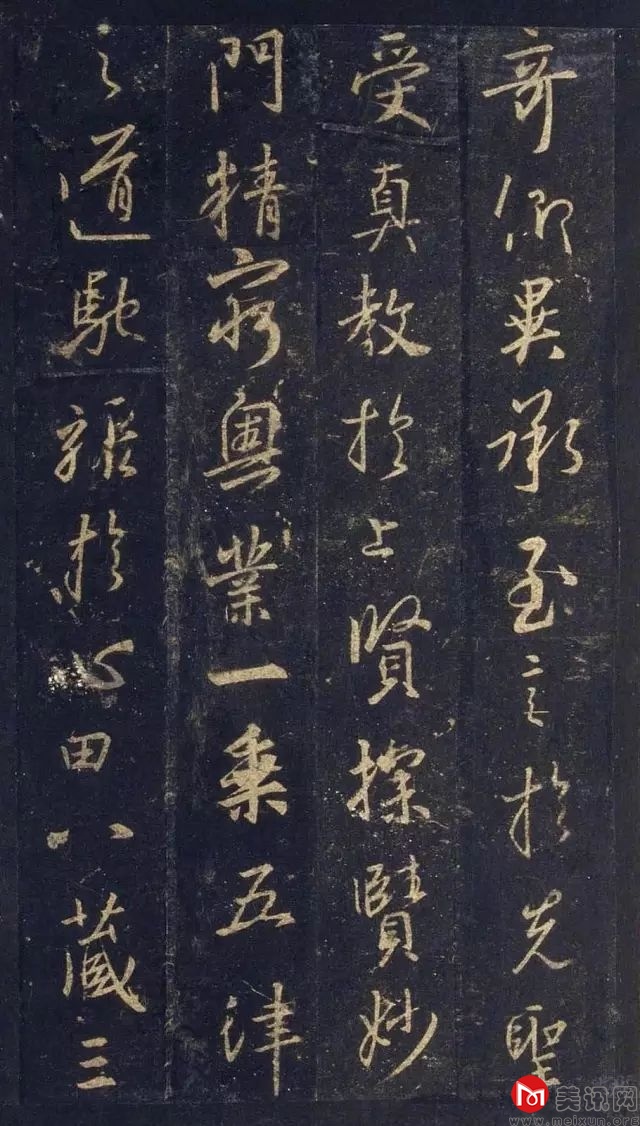 奇仰異承至言於先聖
受真教於上賢探賾妙
門精窮奧業一乘五律
之道馳驟於心田八藏三
美讯网
www.meixun.org